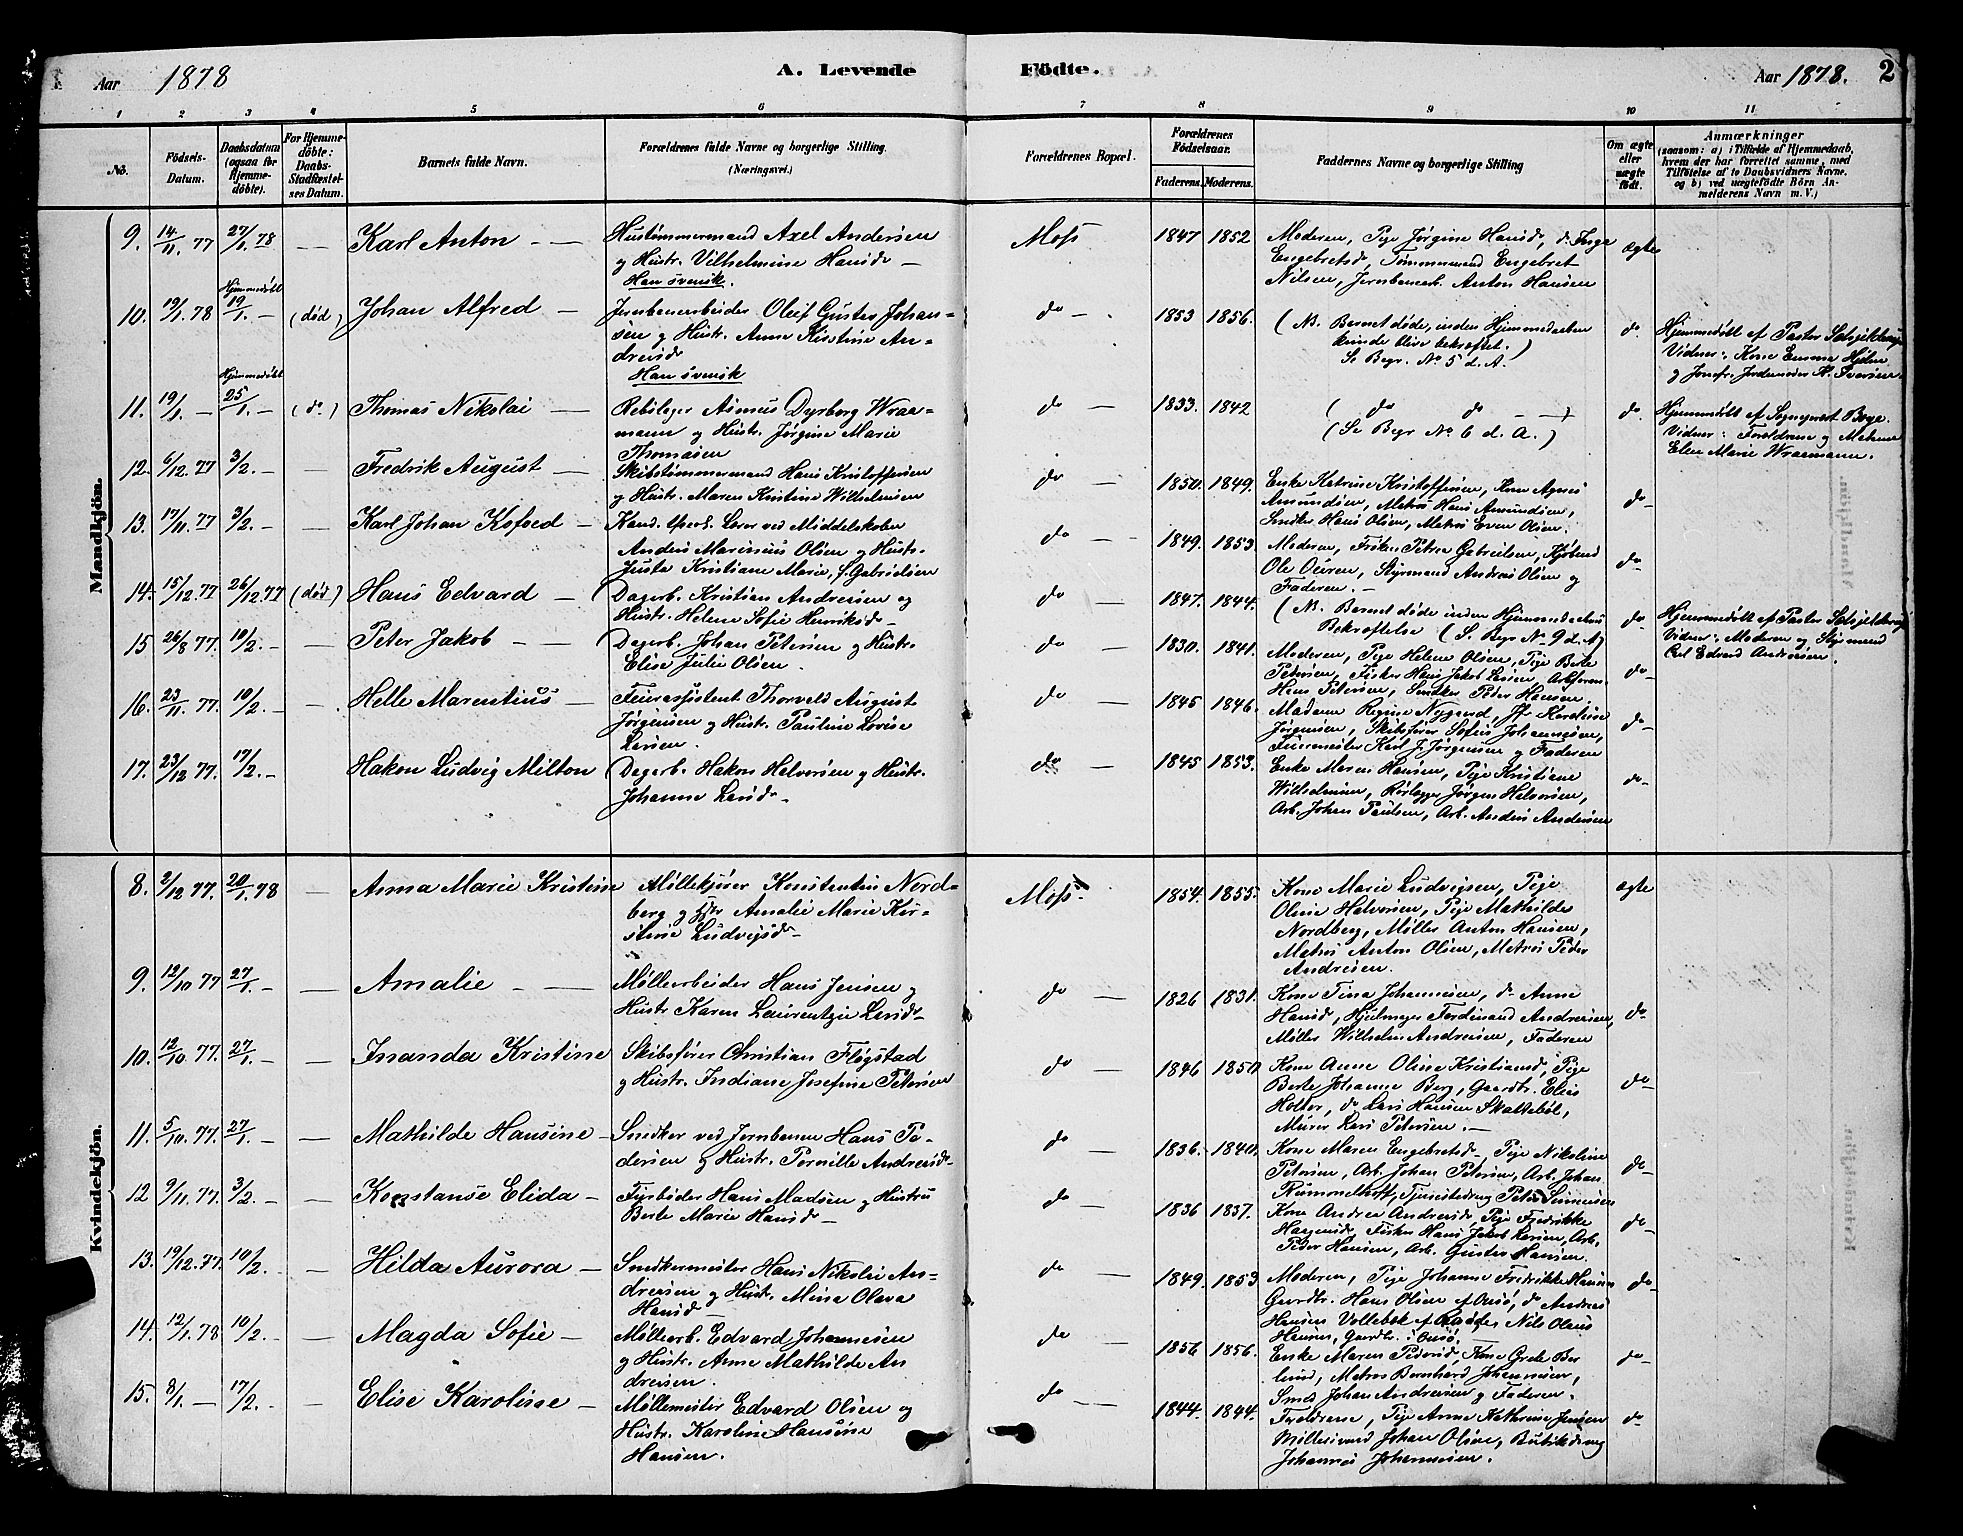 Aar 1878 A. Levende Födte. Aar 1878. 2
1 2 3 4 5 6 7 8 9 10 11
No. Födsels-Datum. Daabsdatum (ogsaa for Hjemme-döbte). For Hjemme-döbte: Daabs-Stadfæstel-ses Datum. Barnets fulde Navn. Forældrenes fulde Navne og borgerlige Stilling (Næringsvei.) Forældrenes Bopæl. Forældrenes Födselsaar. Faderens. Moderens. Faddernes Navne og borgerlige Stilling Om ægte eller uægte födt. Anmærkninger (saasom: a) i Tilfælde af Hjemmedaab, hvem der har forrettet samme, med Tilföielse af to Daabsvidners Navne, og b) ved uægtefödte Börn An-melderens Navn m. V.)
Mandkjön.
9. 14/11. 77 27/1. 78 — Karl Anton — Hustømmermand Axel Andersen 1847 1852 Moderen, Pige Jørgine Hansd., do Inga ægte
og Hustr. Vilhelmine Hansd. — Moss Engebretsd., Tømmermand Engebret
Han svensk. Nilsen, Jernbanearb. Anton Hansen
10. 19/1. 78 Hjemmedöbt 19/1. — (död) Johan Alfred — Jernbanearbeider Olof Gustav Johan- do — 1853 1856. (NB. Barnet døde, inden Hjemmedaaben do
sen og Hustr. Anna Kristine An- kunde blive bekræftet.) Hjemmedöbt af Pastor
dreasd. Se Begr. No 5 d. A. Vidner: Kone Emma Hjelm
Han svensk og Jomfr. Jordemoder
11. 19/1. — Hjemmedöbt 25/1. — (do) Thomas Nikolai — Rebslager Asmus Dyrborg Wraa- do — 1833. 1842 ( do do — ) do. Hjemmedöbt af Sognepræst
mann og Hustr. Jørgine Marie (Se Begr No 6 d. A.) Vidner: Forældrene og Madame
Thomasen Elen Marie Wraamann.
12. 6/12. 77 3/2. — — Fredrik August — Skibstømmermand Hans Kristoffersen do — 1850. 1849. Enke Katrine Kristoffersen, Kone Agnes do
og Hustr. Maren Kristine Wilhelmsen Amundsen, Matros Hans Amundsen,
Snedker Hans Olsen, Matros Even Olsen.
13. 17/11. 77 3/2. — — Karl Johan Kofoed — Kand. theol. Lærer ved Middelskolen do — 1849. 1853. Moderen, Frøken Petra Gabrielsen, Kjøbmd do
Anders Marinius Olsen og Hustr. Ole Styrmand Andreas Olsen og
Justa Kristiane Marie, f. Gabrielsen Faderen. —
14. 15/12. 77 26/12. 77 (död) Hans Edvard — Dagarb. Kristian Andersen og do — 1847. 1844. (NB. Barnet døde inden Hjemmedaabens do Hjemmedöbt af Pastor
Hustr. Helene Sofie Henriksd. — Bekræftelse (Se Begr No 9 d. A) Vidner: Moderen og Styrmand
15 26/8. 77. 10/2. — — Peter Jakob — Dagarb. Johan Petersen og Hustr. do — 1830. 1841. Moderen, Pige Helene Olsen, Pige Berte do Carl Edvard Andersen.
Elise Julie Olsen. Petersen, Fisker Hans Jakob Larsen,
Hans Petersen, Snedker Peter Hansen
16. 23/11. 77. 10/2. — — Helle Marentius — Feierassistent Thorvald August do — 1845 1846. Madame Regine Nygaard, Jfr. Karoline do
Jørgensen og Hustr. Pauline Lovise Jørgensen, Skibsfører Sofus Johannesen,
Larsen. Feiermester Karl J. Jørgensen og Faderen
17. 23/12 77. 17/2. — Hakon Ludvig Milton Dagarb. Hakon Halvorsen og Hustr. do — 1845 1853. Enke Maren Hansen, Pige Kristiane do
Johanne Larsd. — Wilhelmsen, Rørlægger Jørgen Halvorsen,
Arb. Johan Paulsen, Arb. Anders Andersen
Kvindekjön.
8. 2/12. 77. 20/1. 78 — Anna Marie Kristine Møllekjører Konstantin Nord- Moss. 1854. 1855. Kone Marie Ludvigsen, Pige ægte
berg og Hstr Amalie Marie Kir- Oline Halvorsen, Pige Mathilde
stine Ludvigsd. — Nordberg, Møller Anton Hansen,
Matros Anton Olsen, Matros Peder
Andresen.
9. 12/10 77 27/1. — — Amalie — Møllearbeider Hans Jensen og do — 1826 1831. Kone Tina Johannesen, do Anna do
Hustr Karen Laurentze Larsd. — Hansd., Hjulmager Ferdinand Andresen,
Møller Wilhelm Andresen, Faderen
10. 12/10. 77. 27/1. — — Inanda Kristine Skibsfører Christian Fløgstad do — 1846 1850 Kone Anne Oline Kristiansd, Pige do
og Hustr. Indiane Josefine Petersen Berte Johanne Berg, Gaardbr. Elias
Holter, do Lars Hansen Skallebøl,
Murer Lars Petersen. —
11. 5/10. 77. 27/1. — — Mathilde Hansine — Snedker ved Jernbanen Hans Pe- do — 1836. 1840. Kone Maren Engebretsd. Pige Nikoline do
dersen og Hustr. Pernille Andersd. — Petersen, Arb. Johan Petersen, Arb. Johan
12 9/11. 77. 3/2. — — Konstanse Elida — Fyrbøder Hans Madsen og Hustru do — 1836 1837. Kone Andrea Andersd, Pige Fredrikke do
Berte Marie Hansd. — Fisker Hans Jakob Larsen, Arb.
Peder Hansen, Arb. Gustav Hansen
13. 19/12. 77. 10/2. — — Hilda Aurora — Snedkermester Hans Nikolai An- do — 1849. 1853 Moderen, Pige Johanne Fredrikke Hansen do
dresen og Hustr. Mina Olava Gaardbr. Hans Olsen af Onsø, do Andreas
Hansd — Hansen Vollebøk af Raade, Nils Olaus
14. 12/1. 78 10/2. — — Magda Sofie — Møllearb. Edvard Johannesen do — 1856 1856. Hansen, Gaardbr. i Onsø. do
og Hustr. Anna Mathilde An Enke Maren Pedersd, Kone Grete Ber
dresen. lund, Matros Bernhard Johannesen,
Smed Johan Andresen og Faderen.
15. 8/1. — 17/2. — — Elise Karolisse — Møllemester Edvard Olsen og do — 1844. 1844. Forældrene, Pige Anna Kathrine Jensen do
Hustr. Karoline Hansine Møllesvend Johan Olsen, Butikdreng
Hansen. Johannes Johannesen.